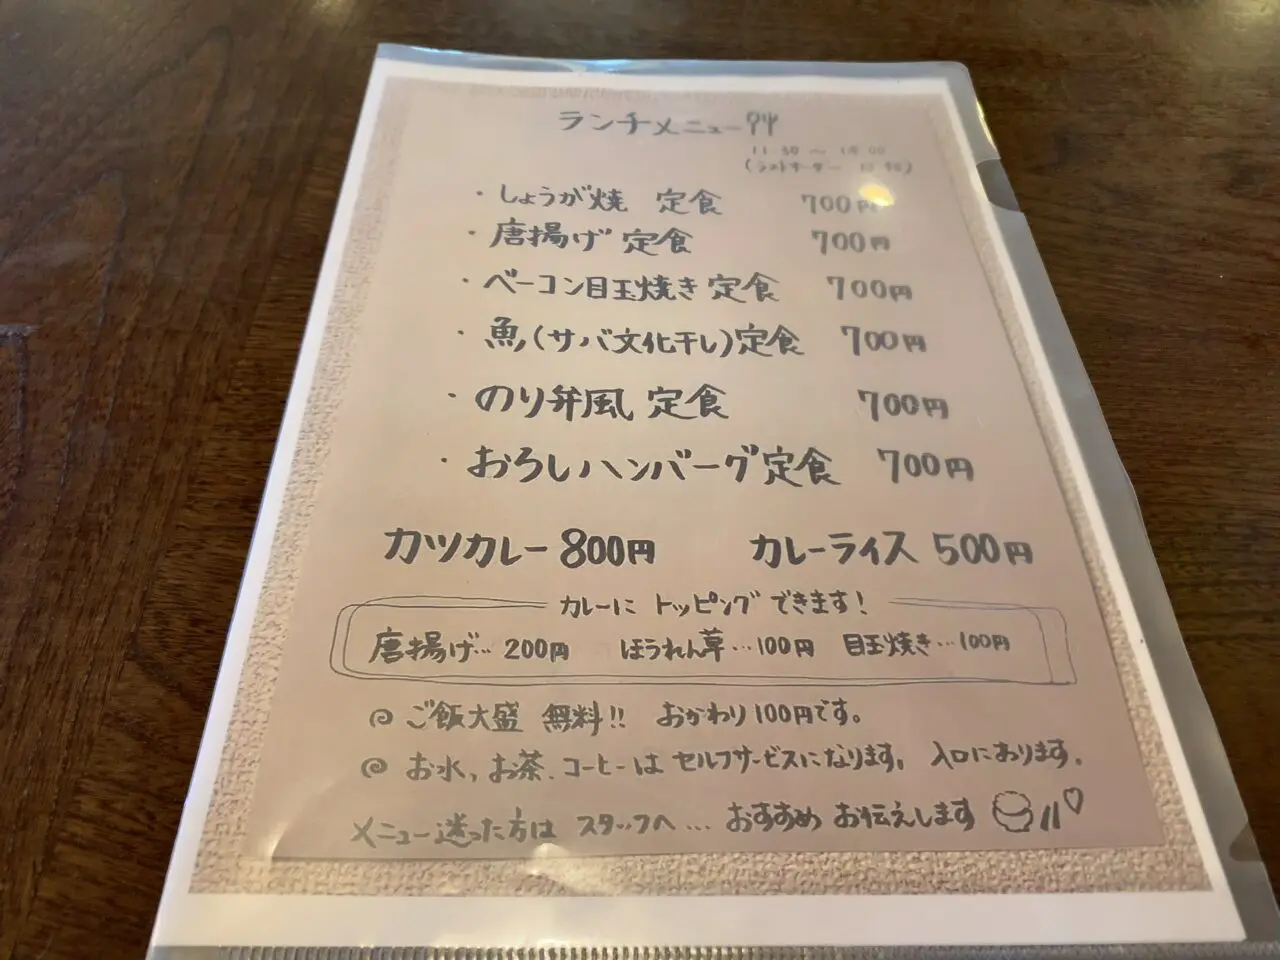 ランチメニュー
(ラストオーダー
・しょうが焼 定食 700円
・唐揚げ 定食 700円
・ベーコン目玉焼き 定食 700円
・魚(サバ文化干し)定食 700円
・のり弁風 定食 700円
・おろしハンバーグ定食 700円
カツカレー 800円 カレーライス 500円
カレーに トッピングできます!
唐揚げ… 200円 ほうれん草…100円 目玉焼き…100円
◎ ご飯大盛 無料!! おかわり100円です。
◎ お水、お茶、コーヒーは セルフサービスになります。入口にあります。
メニュー迷った方は スタッフへ… おすすめ お伝えします